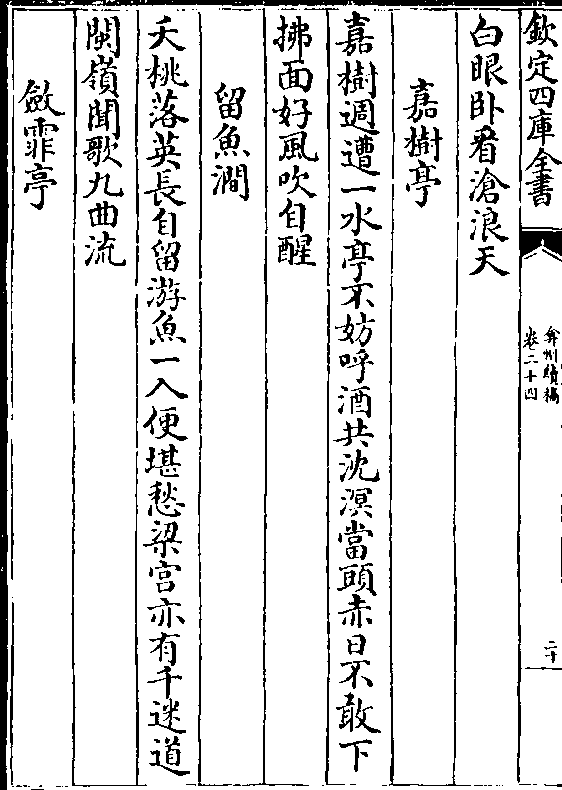 欽定四庫全書
弇州續稿
卷二十四
二十
白眼卧看滄浪天
嘉樹亭
嘉樹週遭一水亭不妨呼酒共沈溟當頭赤日不敢下
拂面好風吹自醒
留魚澗
夭桃落英長自留游魚一入便堪愁梁宫亦有千迷道
閩嶺聞歌九曲流
斂霏亭